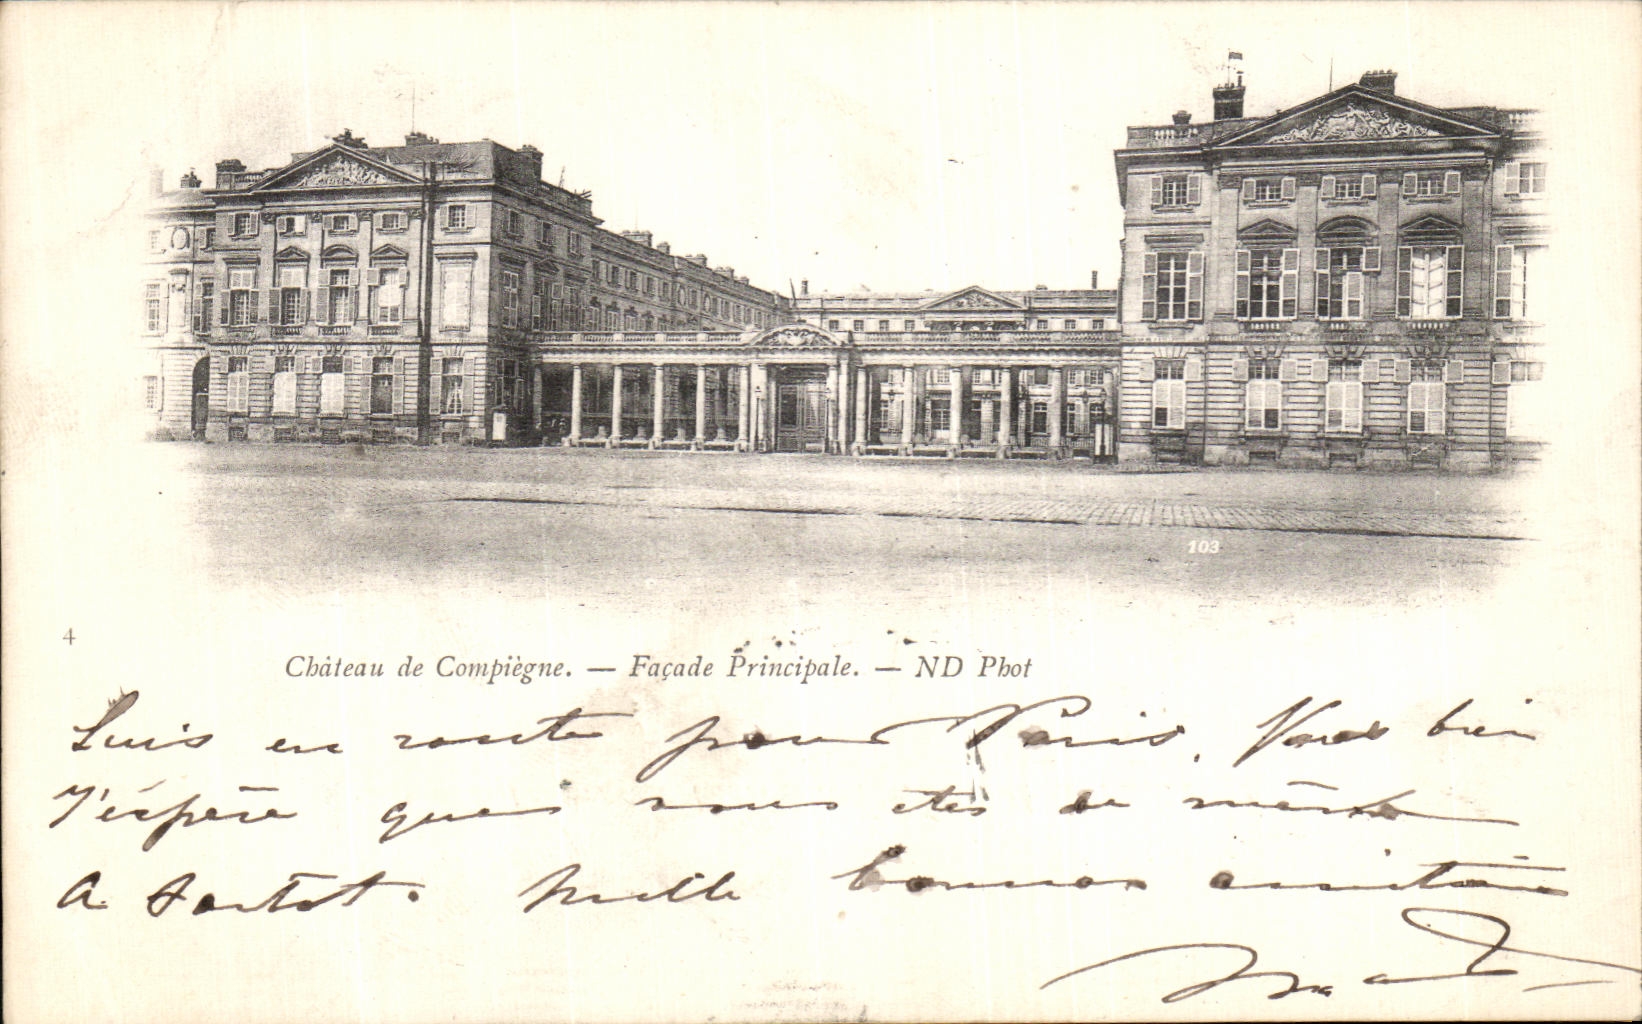 103
4
Château de Compiègne. — Façade Principale. — ND Phot
Suis en route pour Paris. Vais bien
J'éspère que vous êtes de même
A bientôt. Mille bonnes amitiés